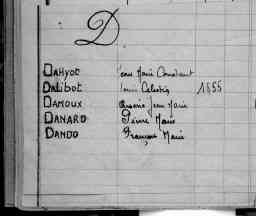 D
DAHYOT Jean Marie Constant
DALIBOT Louis Célestin 1855
DAMOUX Jean Marie
DANARD Pierre Marie
DANDO François Marie